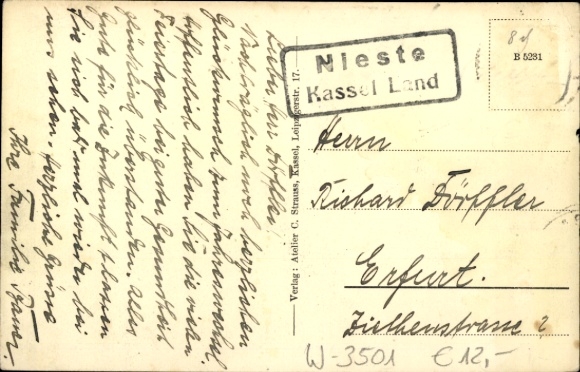 Lieber Herr Dörffler!
Nachträglich noch herzlichen
Glückwunsch zum Jahreswechsel
Hoffentlich haben Sie die vielen
Feiertage bei guter Gesundheit
glücklich überstanden. Alles
Gute für die Zukunft & lassen
Sie sich bald mal wieder bei
uns sehen. Herzliche Grüsse
Ihre Familie
Verlag: Atelier C. Strauss, Kassel, Leipzigerstr. 17.
Nieste
Kassel Land
B 5231
Herrn
Richard Dörffler
Erfurt.
Ziethenstrasse 2
W-3501 €12,-